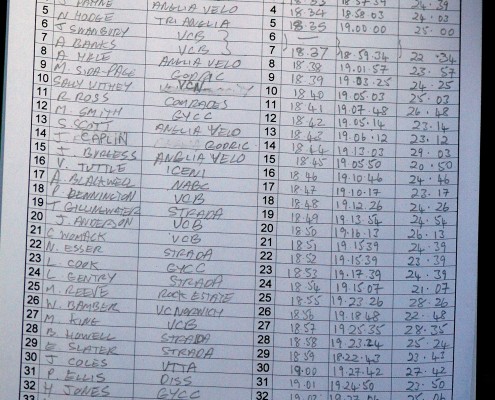 ANGLIA VELO 4 18.34 18.58.03 24.03
5 N HODGE TRIANGLIA 5 18.35 19.00.00 25.00
6 VCB 6
7 A BANKS VCB 7 18.37 18.59.34 22.34
8 ANGLIA VELO 8 18.38 19.01.57 23.57
9 M SIDA-PAGE GODRIC 9 18.39 19.03.25 24.25
10 VITHEY VCN 10 18.40 19.05.03 25.03
11 R ROSS COMRADES 11 18.41 19.07.48 26.48
12 SMITH GYCC 12 18.42 19.05.14 23.14
13 G SCOTT ANGLIA VELO 13 18.43 19.06.12 23.12
14 J CAPLIN GODRIC 14 18.44 19.13.03 29.03
15 BURGESS ANGLIA VELO 15 18.45 19.05.50 20.50
16 V. TUTTLE ICENI 16 18.46 19.10.46 24.46
17 A. BLACKWELL NABC 17 18.47 19.10.17 23.17
18 P. DENNINGTON VCB 18 18.48 19.12.26 24.26
19 T GILLINGWATER STRADA 19 18.49 19.13.54 24.54
20 J. ANDERSON VCB 20 18.50 19.16.13 26.13
21 C WOMACK VCB 21 18.51 19.15.39 24.39
22 N. ESSER STRADA 22 18.52 19.15.39 23.39
23 L. COOK GYCC 23 18.53 19.17.39 24.39
24 L. GENTRY STRADA 24 18.54 19.15.07 21.07
25 M. REEVE ROCK ESTATE 25 18.55 19.23.26 28.26
26 W. BAMBER VC NORWICH 26 18.56 19.18.48 22.48
27 M. KING VCB 27 18.57 19.25.35 28.35
28 B. HOWELL STRADA 28 18.58 19.23.24 25.24
29 E SLATER STRADA 29 18.59 18.22.43 23.43
30 J COLES VTTA 30 19.00 19.27.42 27.42
31 P. ELLIS DISS 31 19.01 19.24.50 23.50
32 H JONES GYCC 32
33